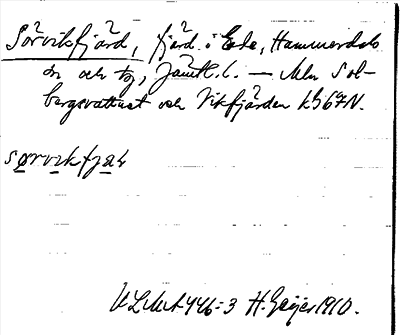 Sörviksfjärd, fjärd i Ede, Hammerdals
sn och tg, Jämtl. l. — Mln Sol-
bergsvattnet och Vikfjärden kb 67 N.
sørvikfjaɫ
446:3 H. Geijer 1910.